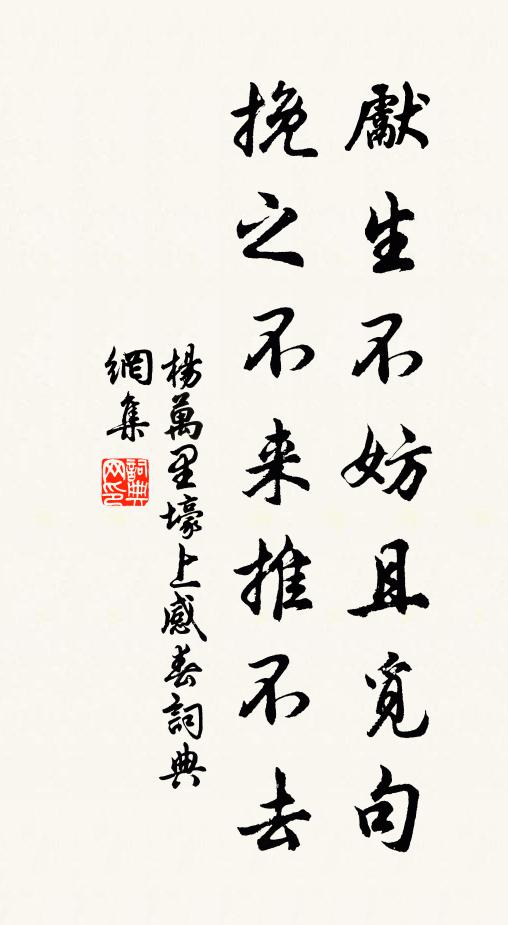 獻生不妨且覓句
挽之不来推不去
楊萬里壕上感春詞典
網集
詞典
网印